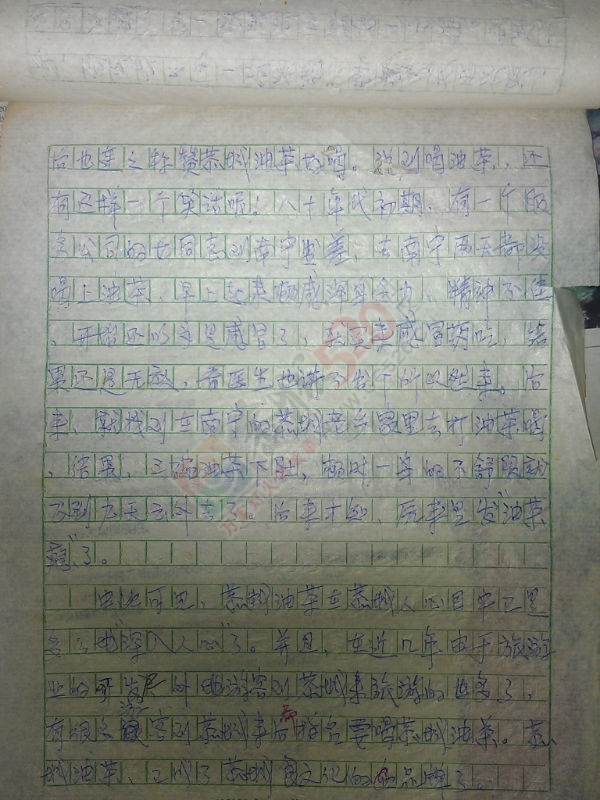 后也连之称赞恭城油茶好喝。说到喝油茶，还
有这样一个笑话呢！八十年代初期，有一个
公司的女同志到南宁出差，去南宁两天都没
喝上油茶，早上起来顿感浑身乏力，精神不佳
，开始还以为是感冒了，买来感冒药吃，结
果还是无效，看医生也讲不出个所以然来。后
来，就找到在南宁的恭城老乡家里去打油茶喝
，结果，三碗油茶下肚，顿时一身的不舒服就
飞到九天云外去了。后来才知，原来是发“油茶
病”了。
由此可见，恭城油茶在恭城人心目中已是
多么地“深入人心”了。并且，在近几年由于旅游
业的开发，外地游客到恭城来旅游的也多了，
有很多游客到恭城来后指名要喝恭城油茶。恭
城油茶，已成了恭城食文化的品牌了。